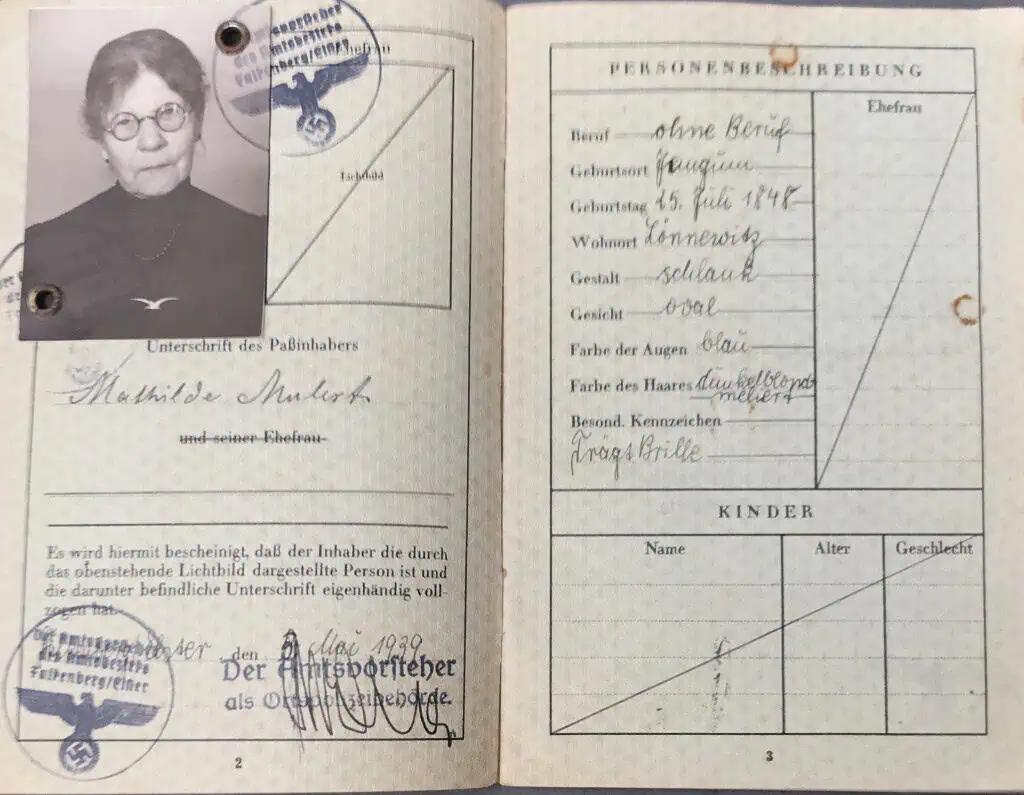 Der Amtsvorsteher
des Amtsbezirks
Falkenberg/Elster
Ehefrau
Lichtbild
Unterschrift des Paßinhabers
Mathilde Mulert
und seiner Ehefrau
Es wird hiermit bescheinigt, daß der Inhaber die durch
das obenstehende Lichtbild dargestellte Person ist und
die darunter befindliche Unterschrift eigenhändig voll-
zogen hat.
den Mai 1939
Der Amtsvorsteher
als Ortspolizeibehörde.
Der Amtsvorsteher
des Amtsbezirks
Falkenberg/Elster
2
PERSONENBESCHREIBUNG
Ehefrau
Beruf ohne Beruf
Geburtsort
Geburtstag 15. Juli 1848
Wohnort Lönnewitz
Gestalt schlank
Gesicht oval
Farbe der Augen blau
Farbe des Haares dunkelblond
meliert
Besond. Kennzeichen
Trägt Brille
KINDER
Name Alter Geschlecht
3